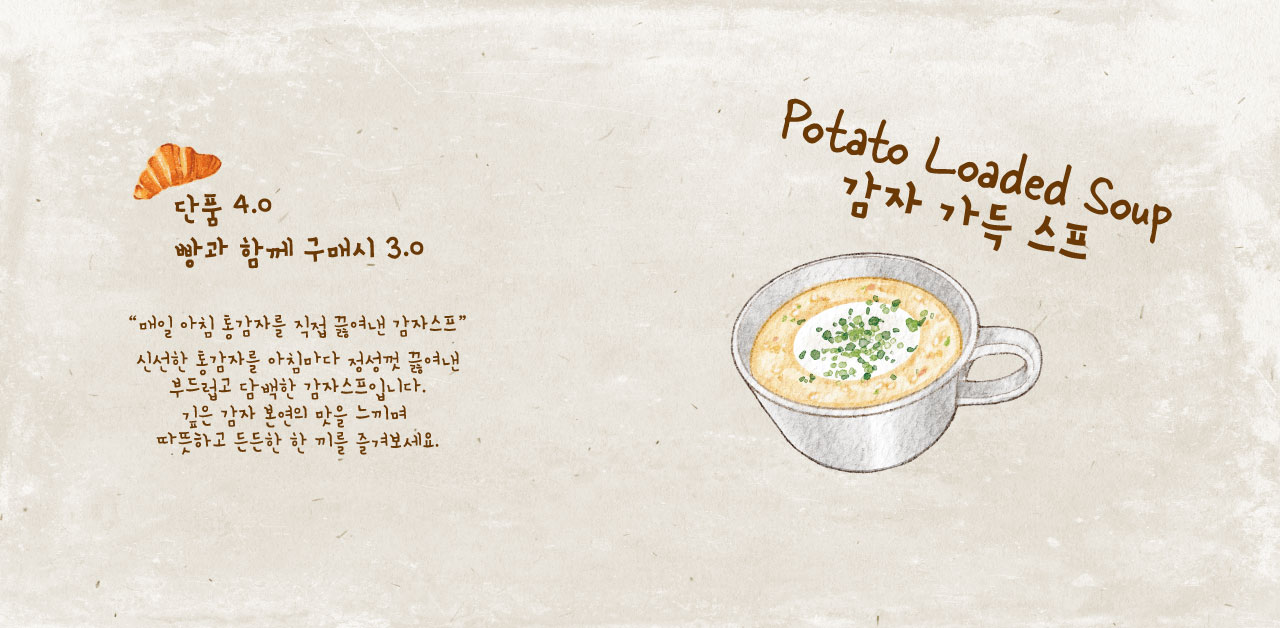 Potato Loaded Soup
감자 가득 스프
단품 4.0
빵과 함께 구매시 3.0
“매일 아침 통감자를 직접 끓여낸 감자스프”
신선한 통감자를 아침마다 정성껏 끓여낸
부드럽고 담백한 감자스프입니다.
깊은 감자 본연의 맛을 느끼며
따뜻하고 든든한 한 끼를 즐겨보세요.